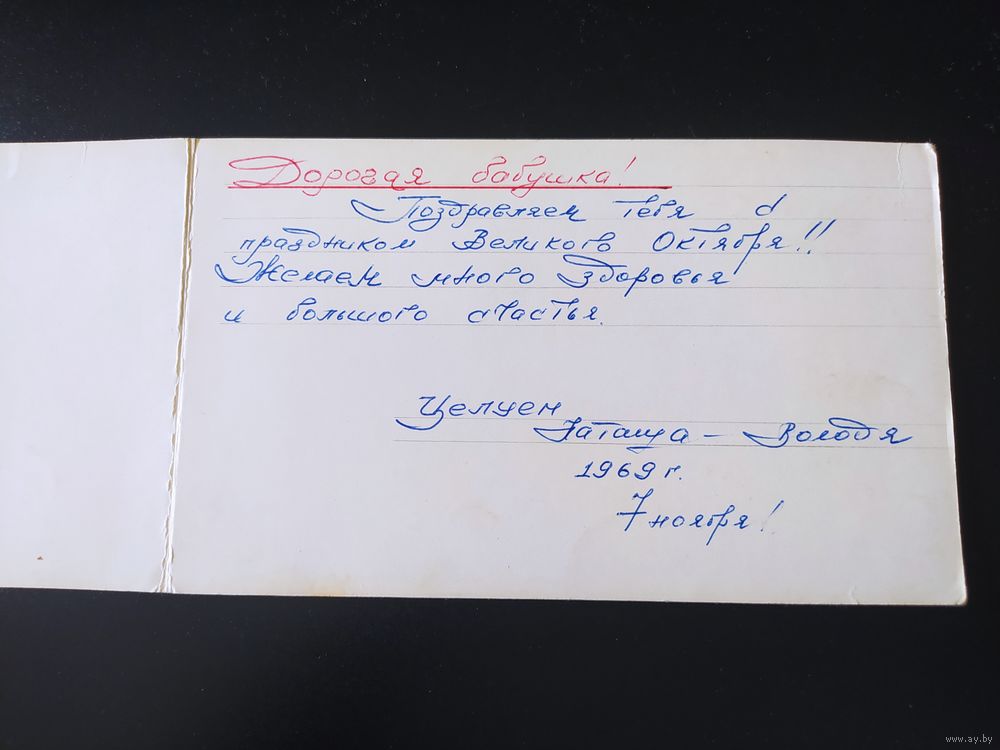 Дорогая бабушка!
Поздравляем тебя с
праздником Великого Октября!!
Желаем много здоровья
и большого счастья.
Целуем
Наташа – Володя
1969 г.
7 ноября!
www.ay.by